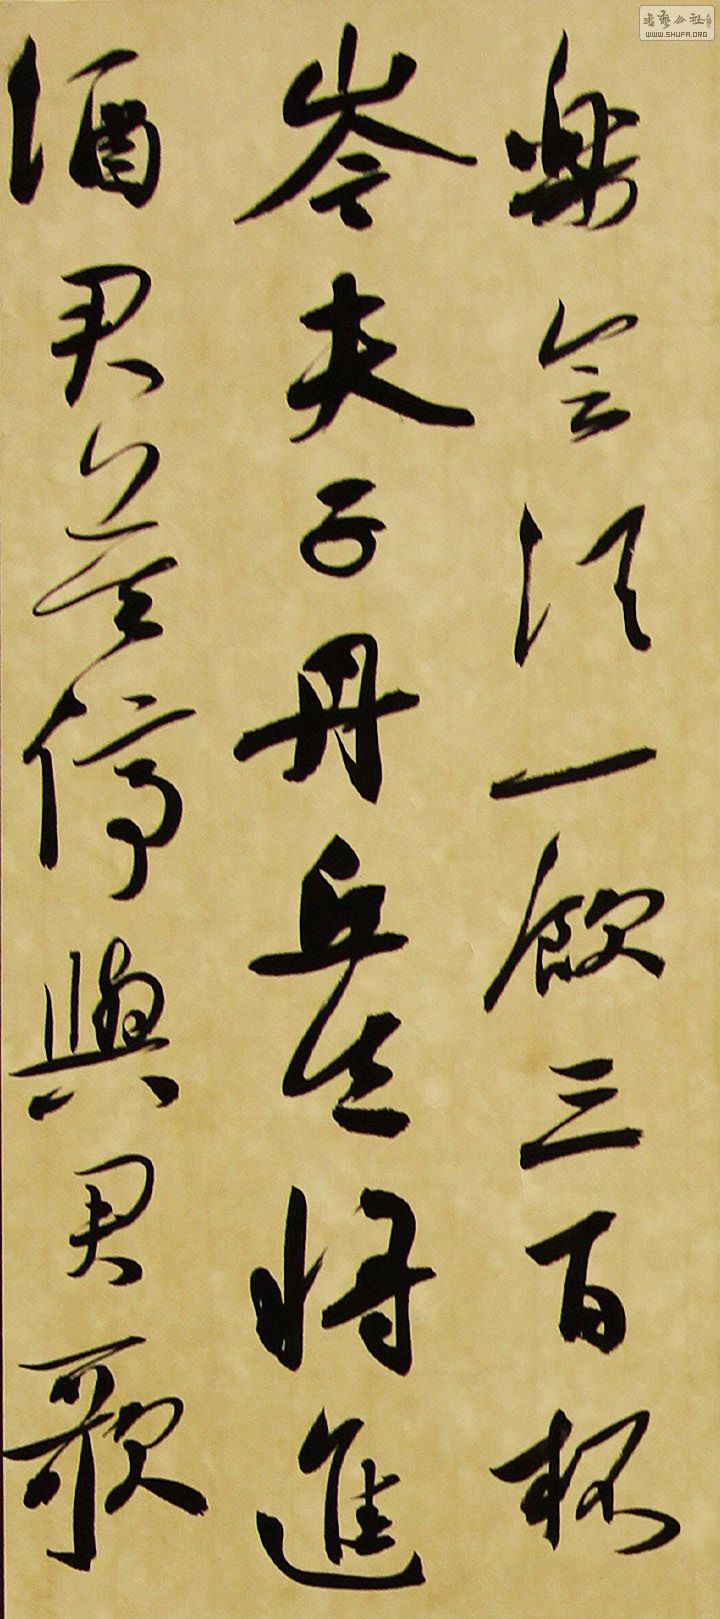 樂会須一飲三百杯
岑夫子丹丘生将進
酒君莫停與君歌
書藝公社
WWW.SHUFA.ORG